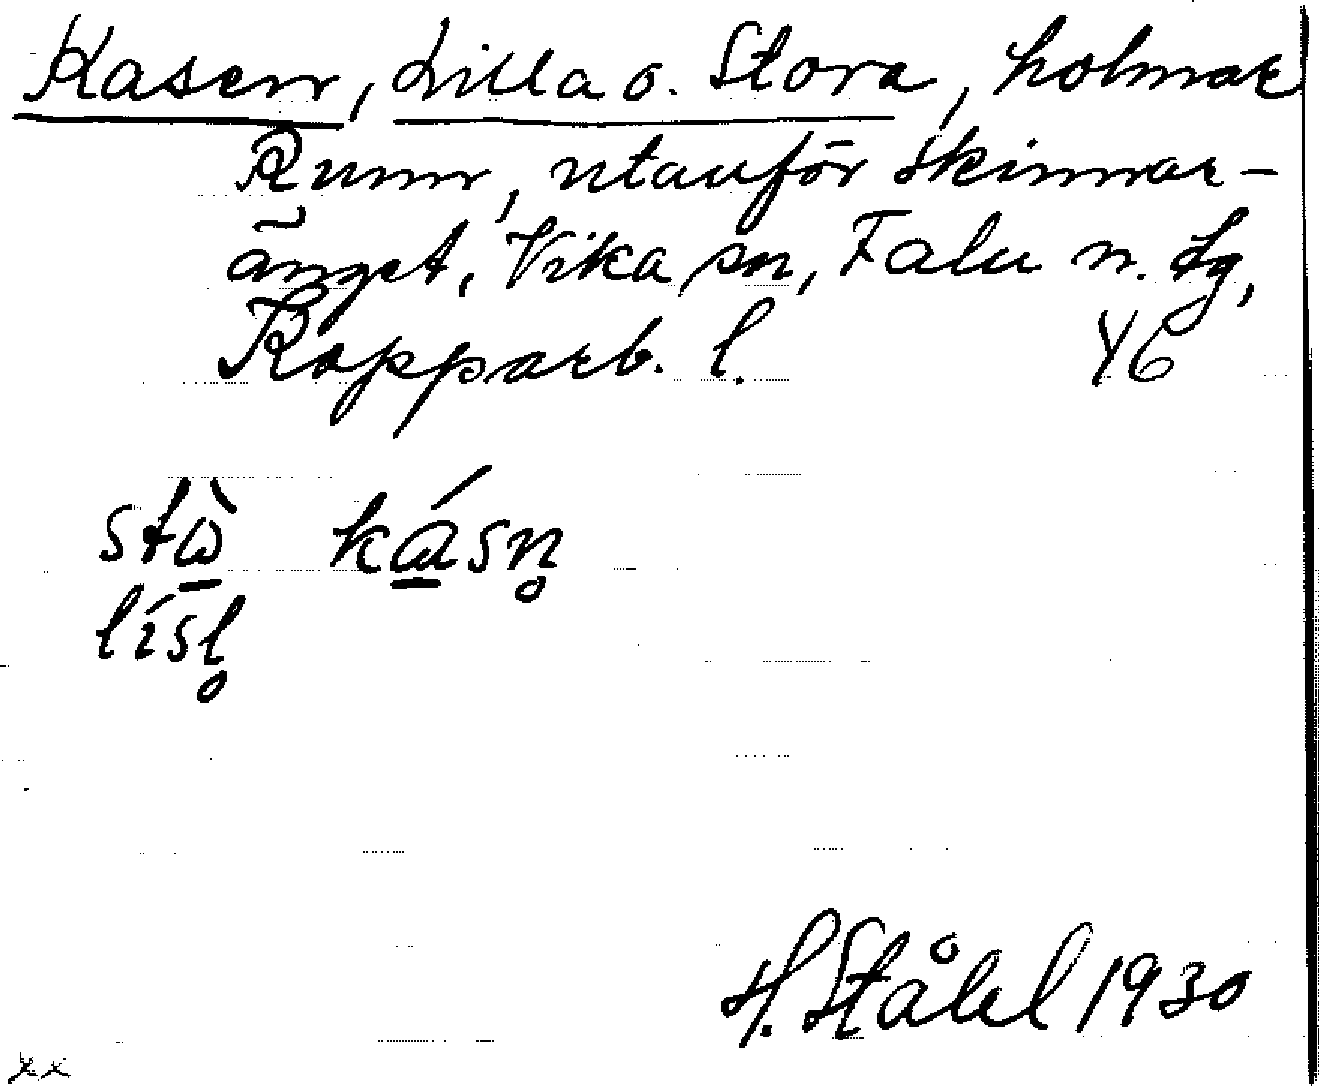 Kasen, Lilla o. Stora, holmar
Runn, utanför Skinnar-
änget, Vika sn, Falu n. Lg,
Kopparb. l. 46
stɷ̀ kɷ́sn̥
lísl̥
H. Ståhl 1930
xx